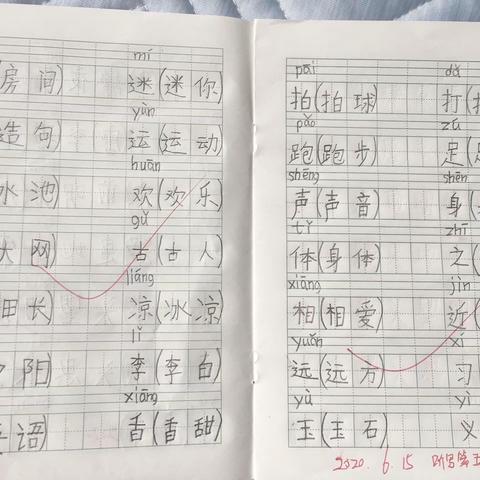 mí
房间) 迷(迷你)
yùn
造句) 运(运动)
huān
水池) 欢(欢乐)
gǔ
网) 古(古人)
liáng
长) 凉(冰凉)
lǐ
阳) 李(李白)
xiāng
语) 香(香甜)
pāi dǎ
拍(拍球) 打(打
pǎo zú
跑(跑步) 足(足
shēng shēn
声(声音) 身(
tǐ zhī
体(身体) 之(
xiāng jìn
相(相爱) 近(
yuǎn xí
远(远方) 习
yù yì
玉(玉石) 义
2020.6.15